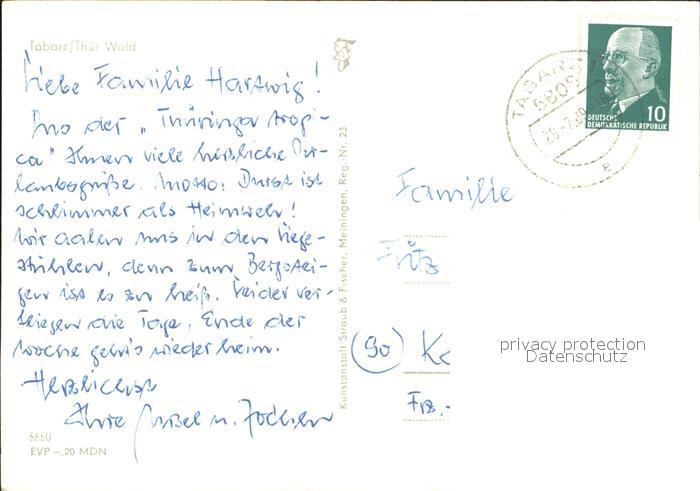 Tabarz/Thür Wald
Liebe Familie Hartwig!
Aus der „Thüringer Tropi-
ca" Ihnen viele herzliche Ur-
laubsgrüße. Motto: Durst ist
schlimmer als Heimweh!
Wir aalen uns in den Liege-
stühlen, denn zum Bergstei-
gen ist es zu heiß. Leider ver-
fliegen die Tage. Ende der
Woche geht's wieder heim.
Herzlichst
Ihre u. Jochen
5660
EVP -,20 MDN
Kunstanstalt Straub & Fischer, Meiningen, Reg.-Nr. 23
TABARZ
5809
DEUTSCHE
DEMOKRATISCHE REPUBLIK
10
e
Familie
Fritz
(90) Ka
Frz.-
privacy protection
Datenschutz